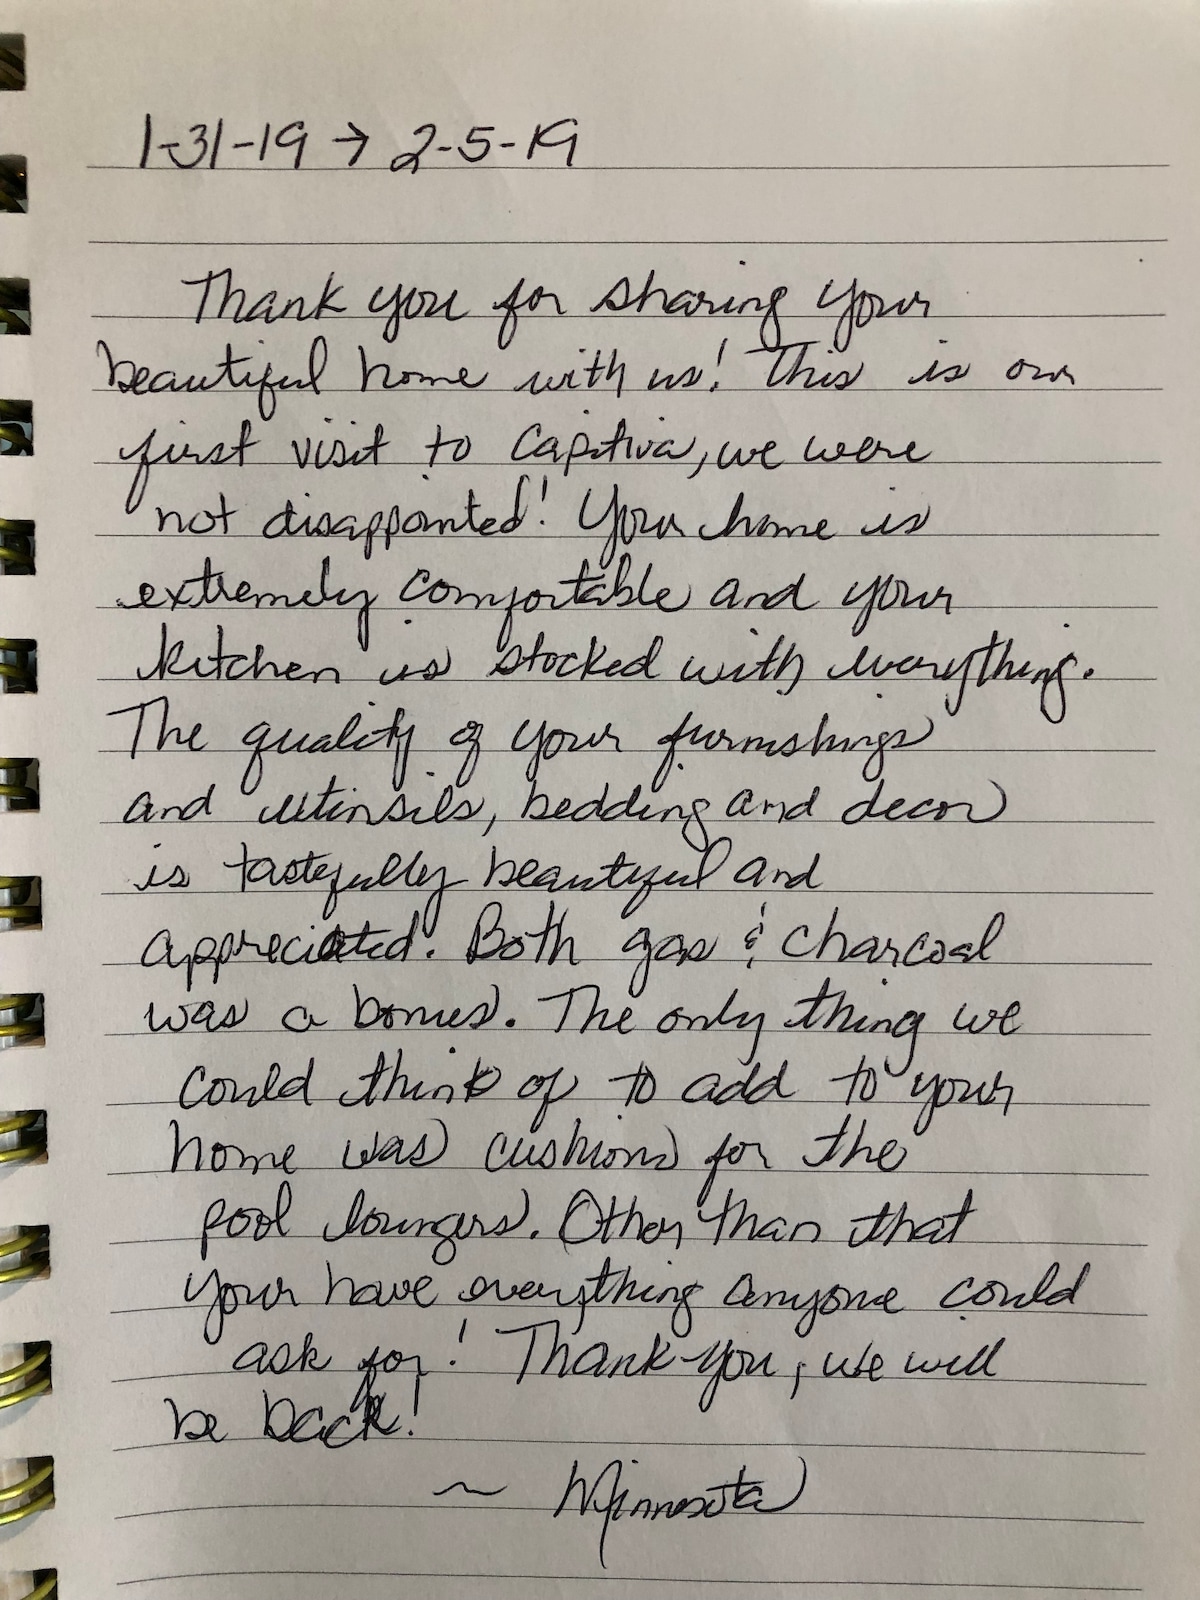 1-31-19 → 2-5-19
Thank you for sharing your
beautiful home with us! This is our
first visit to Capitiva, we were
not disappointed! Your home is
extremely comfortable and your
kitchen is stocked with everything.
The quality of your furnishings
and utinsils, bedding and decor
is tastefully beautiful and
appreciated. Both gas & charcoal
was a bonus. The only thing we
could think of to add to your
home was cushions for the
pool loungers. Other than that
your have everything anyone could
ask for! Thank-you, we will
be back!
~ Minnesota